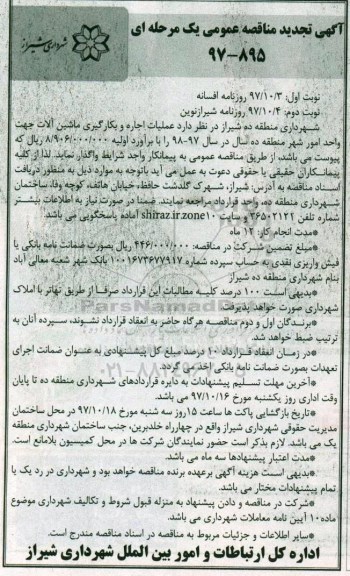 آگهی تجدید مناقصه عمومی یک مرحله ای
۹۷-۸۹۵
شهرداری شیراز
نوبت اول: ۹۷/۱۰/۳ روزنامه افسانه
نوبت دوم: ۹۷/۱۰/۴ روزنامه شیرازنوین
شهرداری منطقه ده شیراز در نظر دارد عملیات اجاره و بکارگیری ماشین آلات جهت
واحد امور شهر منطقه ده سال در سال ۹۷-۹۸ را با برآورد اولیه ۸/۹۰۶/۰۰۰/۰۰۰ ریال که
پیوست می باشد، از طریق مناقصه عمومی به پیمانکار واجد شرایط واگذار نماید. لذا از کلیه
پیمانکاران حقیقی یا حقوقی دعوت به عمل می آید باتوجه به موارد ذیل به منظور دریافت
اسناد مناقصه به آدرس: شیراز، شهرک گلدشت حافظ، خیابان هاتف، کوچه وفا، ساختمان
شهرداری منطقه ده، واحد قرارداد مراجعه نمایند. ضمنا در صورت نیاز به اطلاعات بیشتر
شماره تلفن ۳۶۵۰۲۱۲۲ و سایت shiraz.ir.zone۱۰ آماده پاسخگویی می باشد.
*مدت انجام کار: ۱۲ ماه
*مبلغ تضمین شرکت در مناقصه: ۴۴۶/۰۰۰/۰۰۰ ریال بصورت ضمانت نامه بانکی یا
فیش واریزی نقدی به حساب سپرده شماره ۱۰۰۱۶۷۳۶۷۷۹۱۷ بانک شهر شعبه معالی آباد
بنام شهرداری منطقه ده شیراز
*بدیهی است ۱۰۰ درصد کلیه مطالبات این قرارداد صرفا از طریق تهاتر با املاک
شهرداری صورت خواهد پذیرفت
*برندگان اول و دوم مناقصه هرگاه حاضر به انعقاد قرارداد نشوند، سپرده آنان به
ترتیب ضبط خواهد شد.
*در زمان انعقاد قرارداد ۱۰ درصد مبلغ کل پیشنهادی به عنوان ضمانت اجرای
تعهدات بصورت ضمانت نامه بانکی اخذ می گردد.
*آخرین مهلت تسلیم پیشنهادات به دایره قراردادهای شهرداری منطقه ده تا پایان
وقت اداری روز یکشنبه مورخ ۹۷/۱۰/۱۶ می باشد.
*تاریخ بازگشایی پاکت ها ساعت ۱۵ روز سه شنبه مورخ ۹۷/۱۰/۱۸ در محل ساختمان
مدیریت حقوقی شهرداری شیراز واقع در چهارراه خلدبرین، جنب ساختمان شهرداری منطقه
یک می باشد. لازم بذکر است حضور نمایندگان شرکت ها در محل کمیسیون بلامانع است.
*مدت اعتبار پیشنهادها سه ماه می باشد.
*بدیهی است هزینه آگهی برعهده برنده مناقصه خواهد بود و شهرداری در رد یک یا
تمام پیشنهادات مختار می باشد.
*شرکت در مناقصه و دادن پیشنهاد به منزله قبول شروط و تکالیف شهرداری موضوع
ماده ۱۰ آیین نامه معاملات شهرداری می باشد.
*سایر اطلاعات و جزئیات مربوط به مناقصه در اسناد مناقصه مندرج است.
اداره کل ارتباطات و امور بین الملل شهرداری شیراز